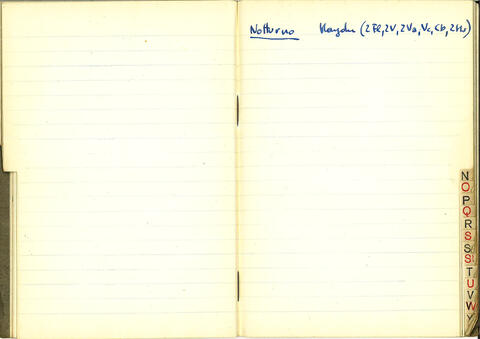 Notturno Haydn (2 Fl, 2V, 2Va, Vc, Cb, 2Hr)
N
O
P
Q
R
S
S
S
T
U
V
W
Y